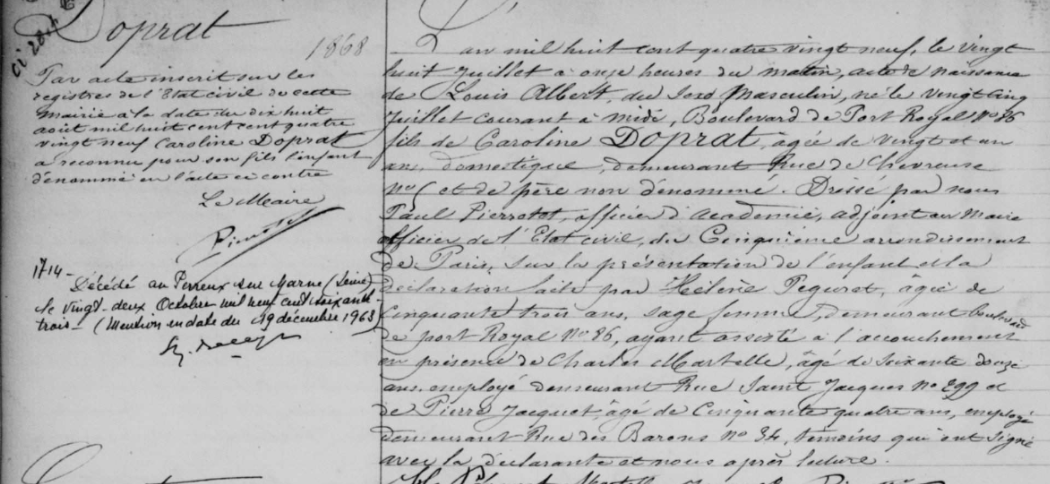 Doprat
1868
Par acte inscrit sur les
registres de l'Etat civil de cette
Mairie à la date du dix huit
août mil huit cent cent quatre
vingt neuf Caroline Doprat
a reconnu pour son fils l'enfant
dénommé en l'acte ci contre
Le Maire
1714 -
Décédé au Perreux sur Marne (Seine)
le vingt-deux Octobre mil neuf cent soixante
trois - (Mention en date du 19 décembre 1963)
L'an mil huit cent quatre vingt neuf, le vingt
huit Juillet à onze heures du matin, acte de naissance
de Louis Albert, du sexe Masculin, né le vingt cinq
Juillet courant à midi, Boulevard de Port Royal No 86
fils de Caroline Doprat, âgée de vingt et un
ans, domestique, demeurant Rue de Chevreuse
no et de père non dénommé. Dressé par nous
Paul Pierrotet, officier d'Académie, adjoint au Maire
officier de l'Etat civil, du Cinquième arrondissement
de Paris, sur la présentation de l'enfant et la
déclaration faite par Hélène Peguret, âgée de
Cinquante trois ans, sage femme, demeurant boulevard
de port Royal No 86, ayant assisté à l'accouchement
en présence de Charles Martelle, âgé de Soixante douze
ans, employé demeurant Rue Saint Jacques No 299 et
de Pierre Jacquot, âgé de Cinquante quatre ans, employé
demeurant Rue des Barons No 34, témoins qui ont signé
avec la déclarante et nous après lecture.